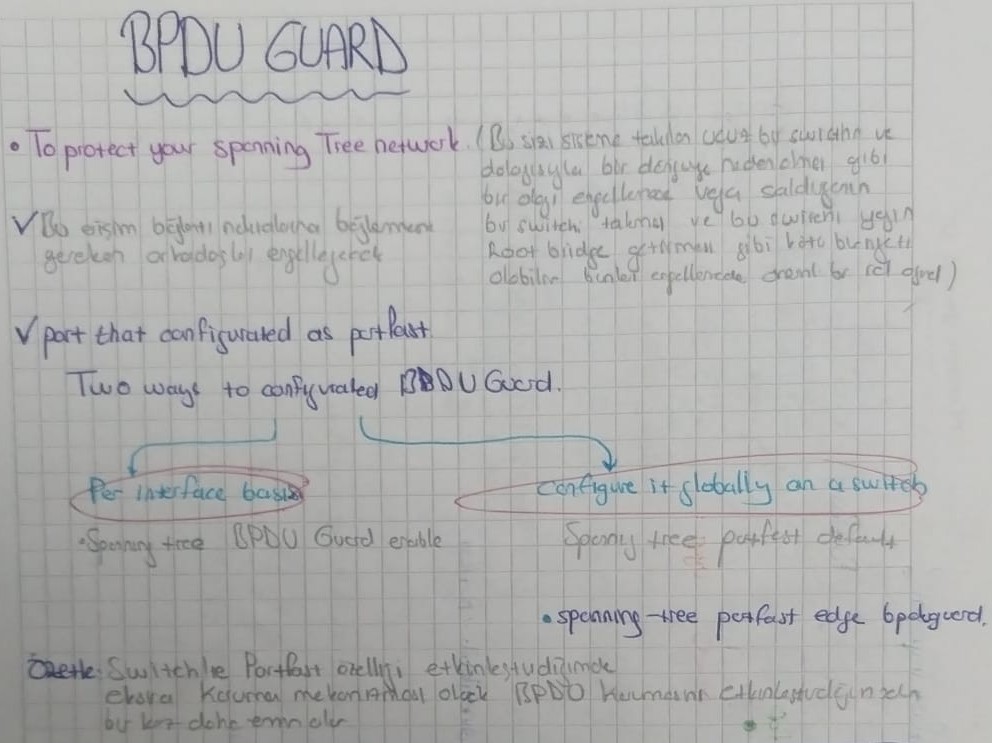 BPDU GUARD
• To protect your spanning Tree network. (Bu sizi sisteme takılan ucuz bir switchin ve
dolayısıyla bir döngüye neden olması gibi
bir olayı engellemede veya saldırganın
bir switchi takması ve bu switchi
Root bridge getirmesi gibi kötü
olabilir engellemede önemli bir rol oynar)
√ Bu erişim bağlantı noktalarına bağlanmaması
gereken engelleyerek
√ port that configurated as portfast.
Two ways to configurated BPDU Guard.
Per interface basis
configure it globally on a switch
• Spanning tree BPDU Guard enable
Spanny tree portfast default
• spanning-tree portfast edge bpduguard.
Özetle: Switchle Portfast özelliği etkinleştirdiğimde
ekstra koruma mekanizması olarak BPDU korumasını etkinleştirdiğinizden
bir kez daha emin olun